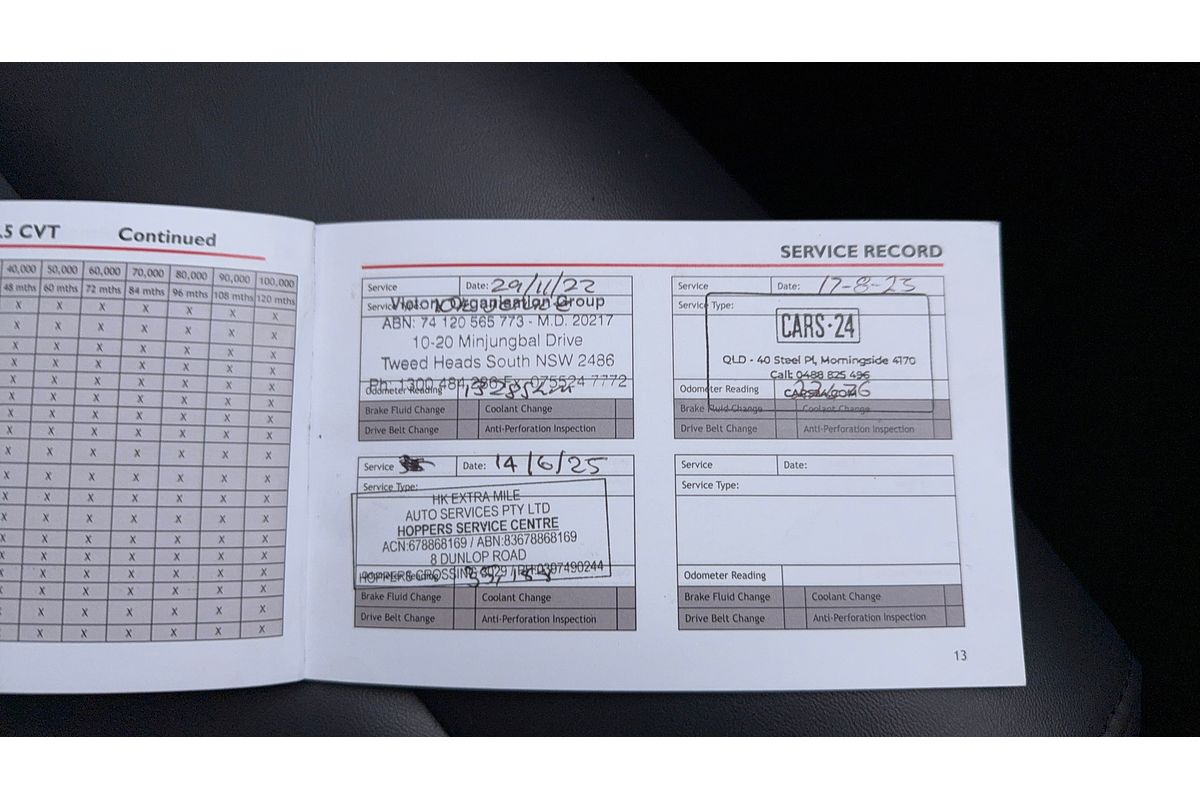 .5 CVT Continued
40,000 50,000 60,000 70,000 80,000 90,000 100,000
48 mths 60 mths 72 mths 84 mths 96 mths 108 mths 120 mths
X X X X X X X
X X X X X X X
X X X X X X X
X X X X X X X
X X X X X X X
X X X X X X X
X X X X X X X
X X X X X X X
X X X X X X X
X X X X X X X
X X X X X X X
X X X X X X X
X X X X X X X
X X X X X X X
X X X X X X X
X X X X X X X
X X X X X X X
X X X X X X
SERVICE RECORD
Service Date: 29/11/22
Victory Organisation Group
ABN: 74 120 565 773 - M.D. 20217
10-20 Minjungbal Drive
Tweed Heads South NSW 2486
Ph: 1300 484 286 Fx: 075524 7772
Odometer Reading
Brake Fluid Change Coolant Change
Drive Belt Change Anti-Perforation Inspection
Service Date: 17-8-23
Service Type:
CARS·24
QLD - 40 Steel Pl, Morningside 4170
Call: 0488 825 496
Odometer Reading
Brake Fluid Change Coolant Change
Drive Belt Change Anti-Perforation Inspection
Service Date: 14/6/25
Service Type:
HK EXTRA MILE
AUTO SERVICES PTY LTD
HOPPERS SERVICE CENTRE
ACN:678868169 / ABN:83678868169
8 DUNLOP ROAD
HOPPERS CROSSING 3029 / PH:0397490244
Brake Fluid Change Coolant Change
Drive Belt Change Anti-Perforation Inspection
Service Date:
Service Type:
Odometer Reading
Brake Fluid Change Coolant Change
Drive Belt Change Anti-Perforation Inspection
13